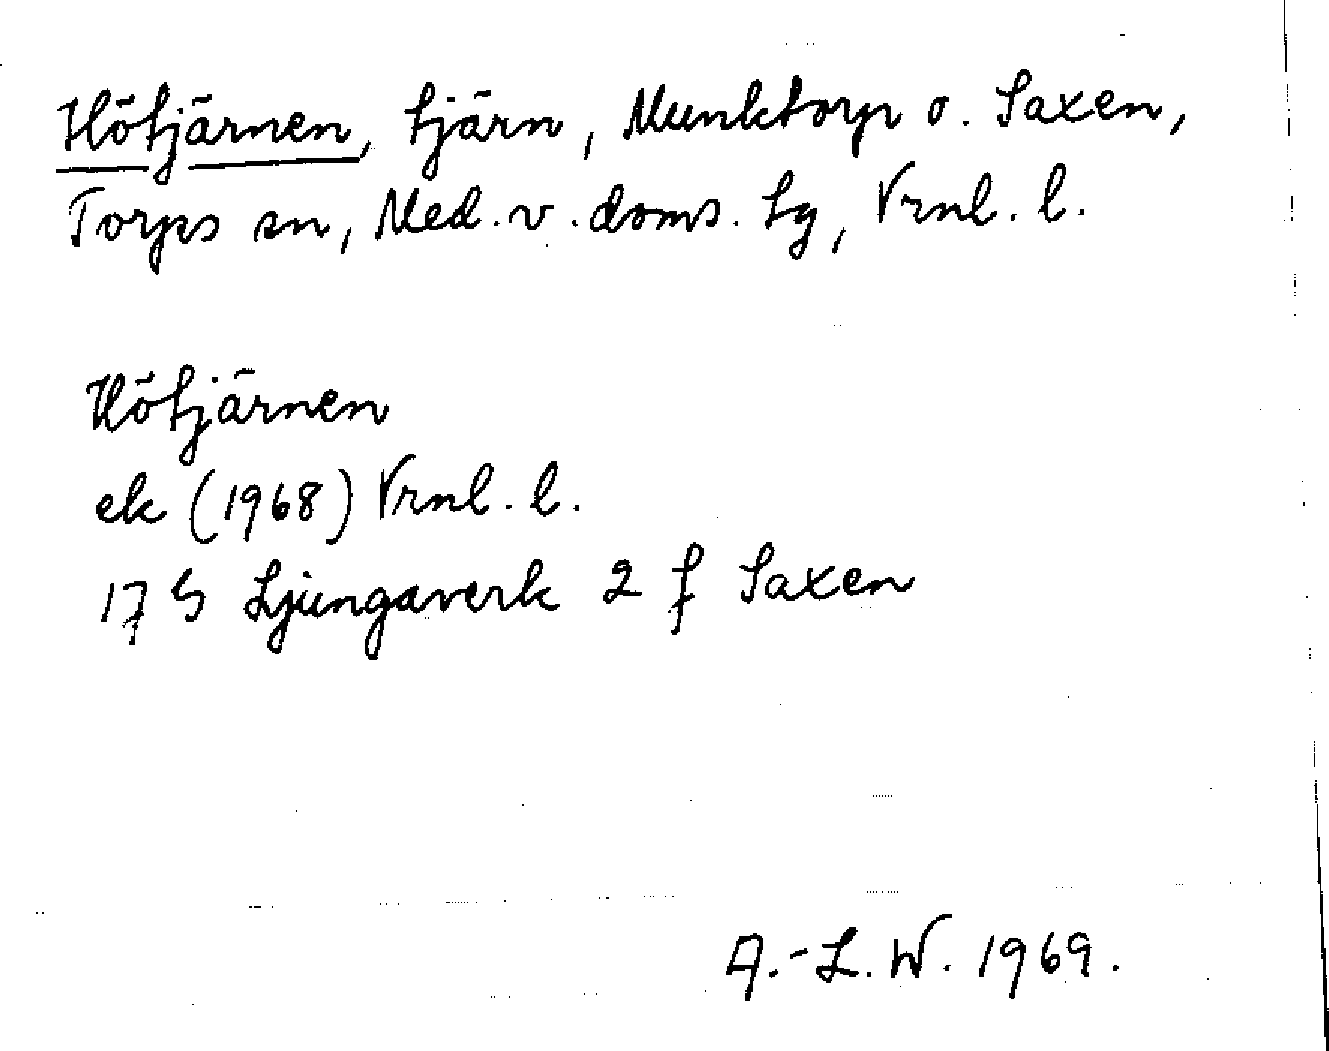 Hötjärnen, tjärn, Munktorp o. Saxen,
Torps sn, Med. v. doms. tg, Vrnl. l.
Hötjärnen
ek (1968) Vrnl. l.
17 G Ljungaverk 2 f Saxen
A.-L. W. 1969.